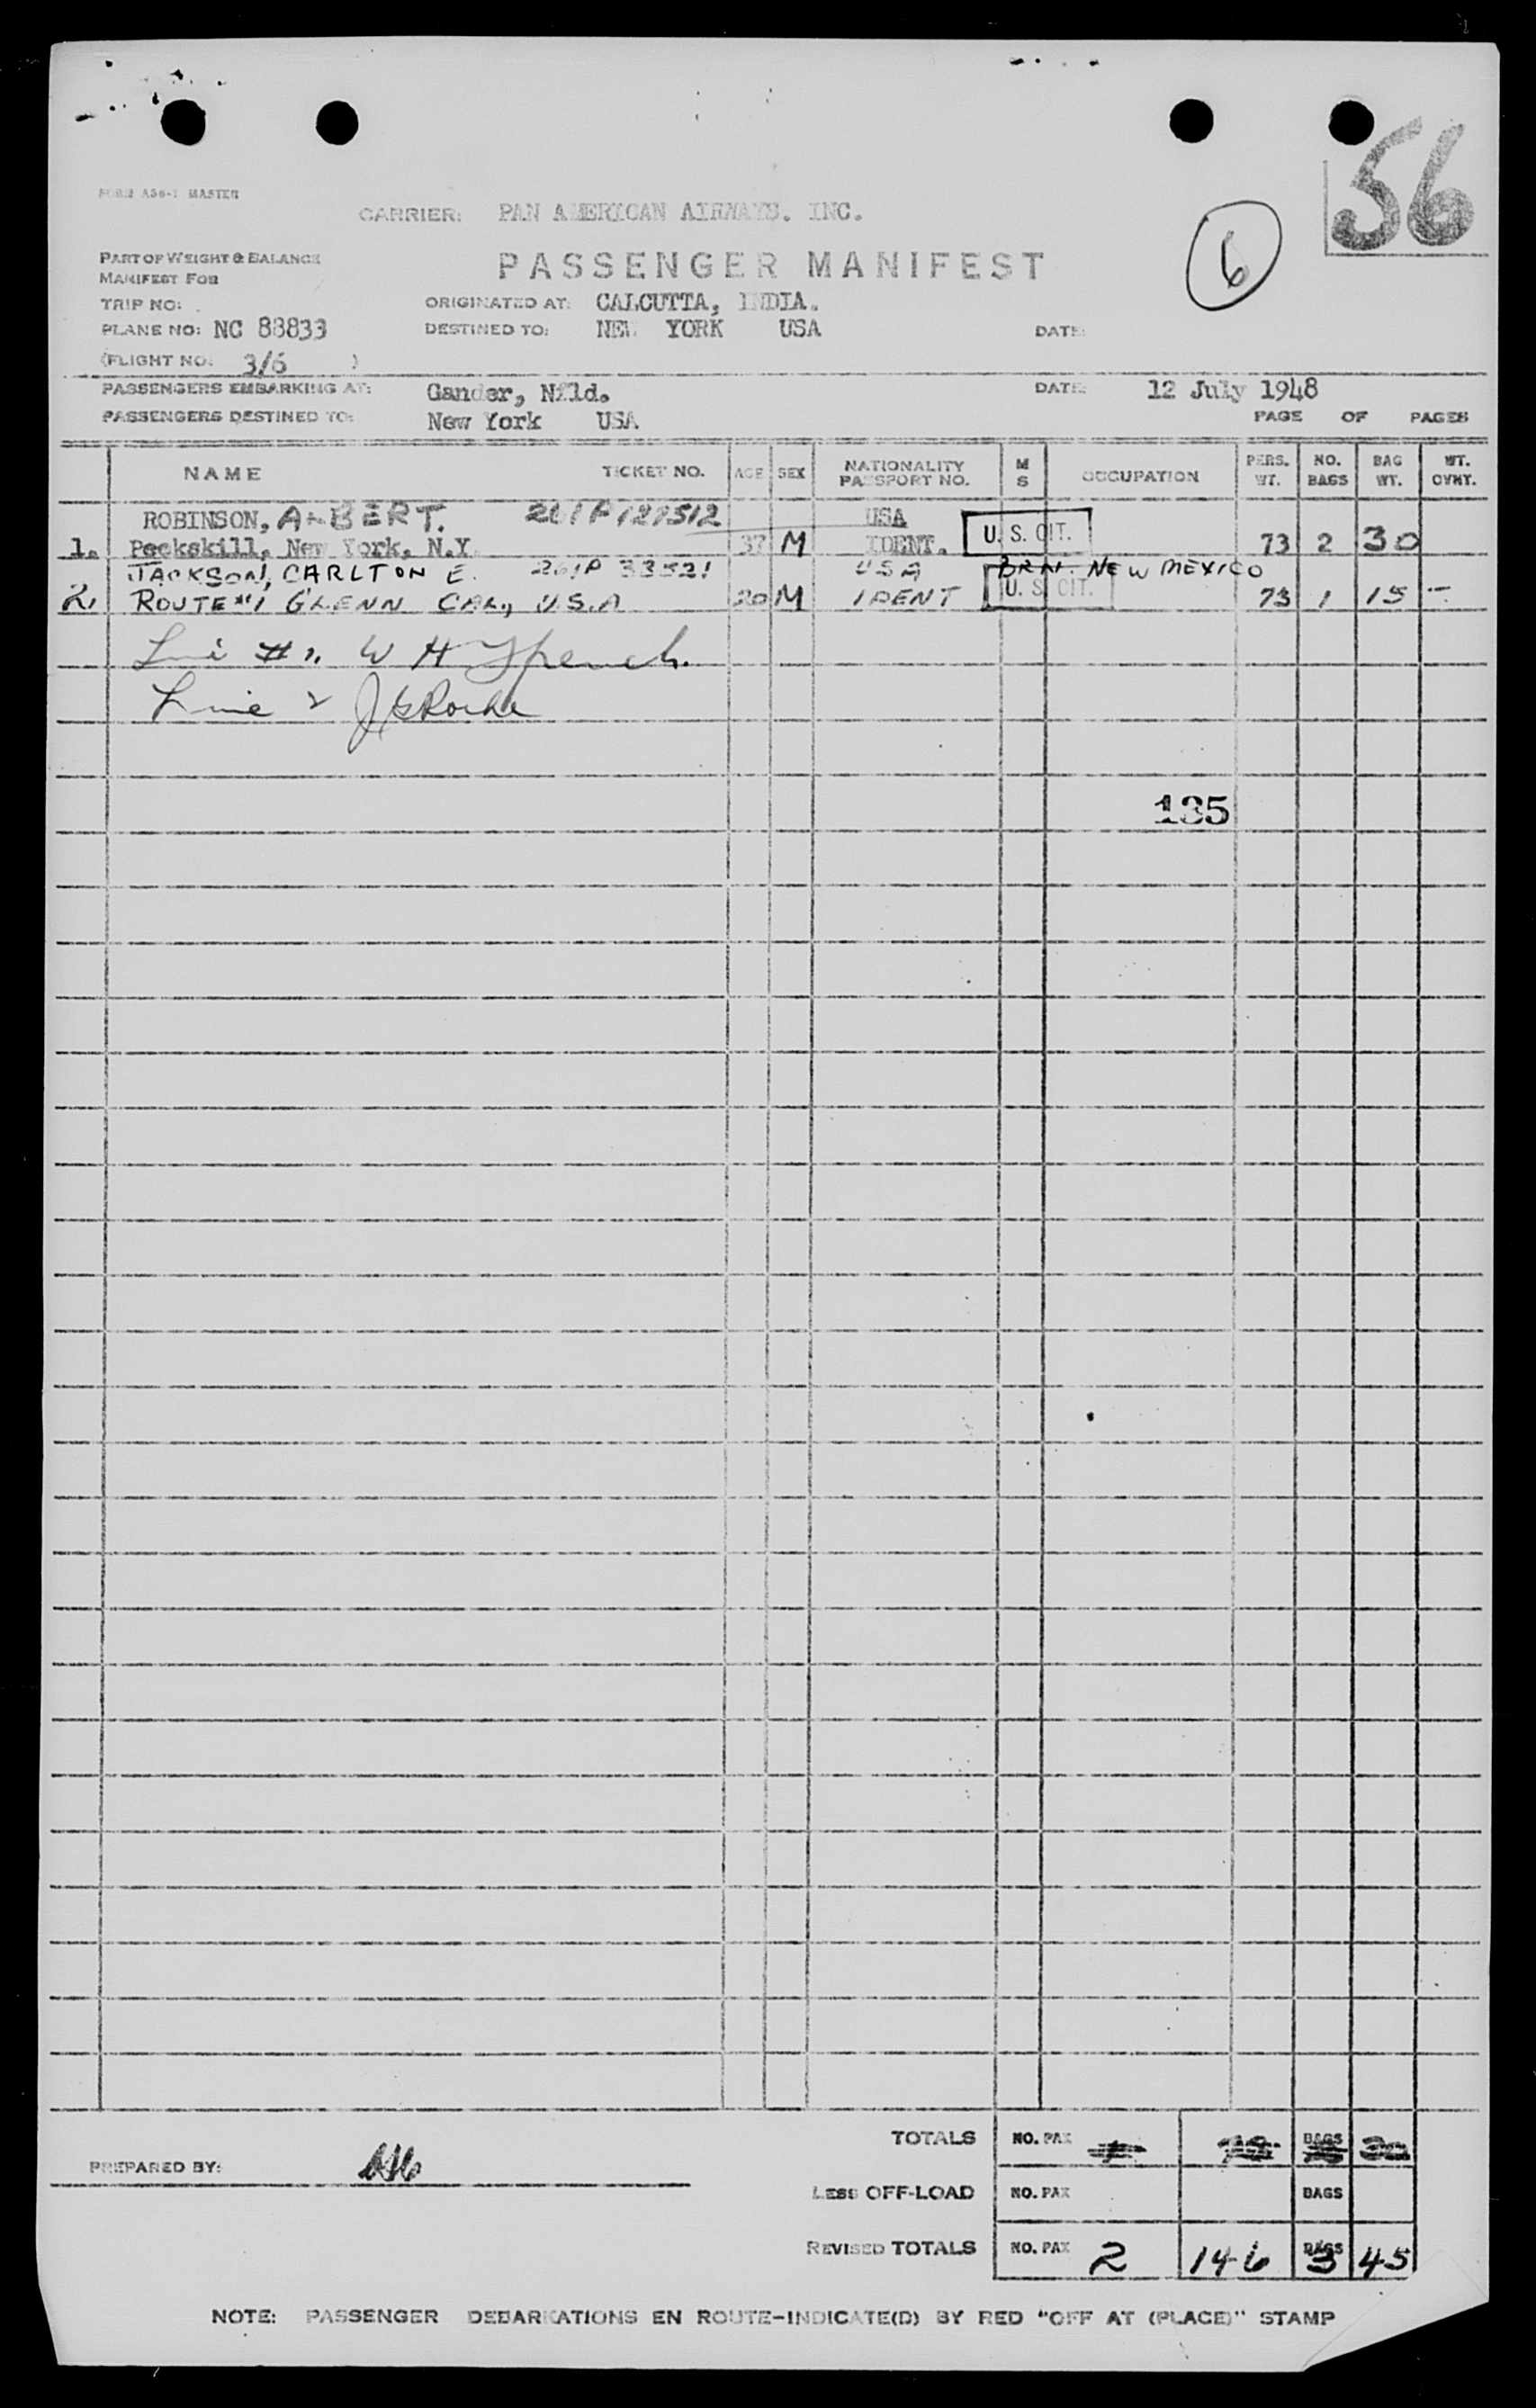 56
FORM A36-1 MASTER
CARRIER: PAN AMERICAN AIRWAYS. INC.
6
PART OF WEIGHT & BALANCE
PASSENGER MANIFEST
MANIFEST FOR
TRIP NO:
ORIGINATED AT: CALCUTTA, INDIA.
PLANE NO: NC 88833
DESTINED TO: NEW YORK USA
DATE:
(FLIGHT NO: 3/6 )
PASSENGERS EMBARKING AT: Gander, Nfld.
DATE: 12 July 1948
PASSENGERS DESTINED TO: New York USA
PAGE OF PAGES
NAME TICKET NO. AGE SEX NATIONALITY PASSPORT NO. M S OCCUPATION PERS. WT. NO. BAGS BAG WT. WT. OVHT.
ROBINSON, ALBERT. 261P127512 USA
1. Peekskill, New York, N.Y. 37 M IDENT. U. S. CIT. 73 2 30
JACKSON, CARLTON E. 261P 33521 USA BRN. NEW MEXICO
2. ROUTE #1 GLENN CAL, U.S.A 20 M IDENT U. S. CIT. 73 1 15 -
#1. W H
Line 2
135
TOTALS NO. PAX BAGS
PREPARED BY:
LESS OFF-LOAD NO. PAX BAGS
REVISED TOTALS NO. PAX 2 146 BAGS 3 45
NOTE: PASSENGER DEBARKATIONS EN ROUTE-INDICATE(D) BY RED "OFF AT (PLACE)" STAMP